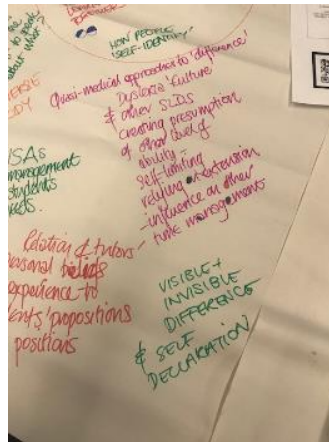 to speak
about what?
HOW PEOPLE
SELF-IDENTIFY
Quasi-medical approaches to 'difference'
Dyslexia 'Culture'
& other SLDS
creating presumption
of other level of
ability =
self-limiting
relying on extension
- influence on other
time managemens
SAs
management
students
Relation of tutors'
personal beliefs
experience to
ents' propositions
positions
VISIBLE +
INVISIBLE
DIFFERENCE
& SELF
DECLARATION